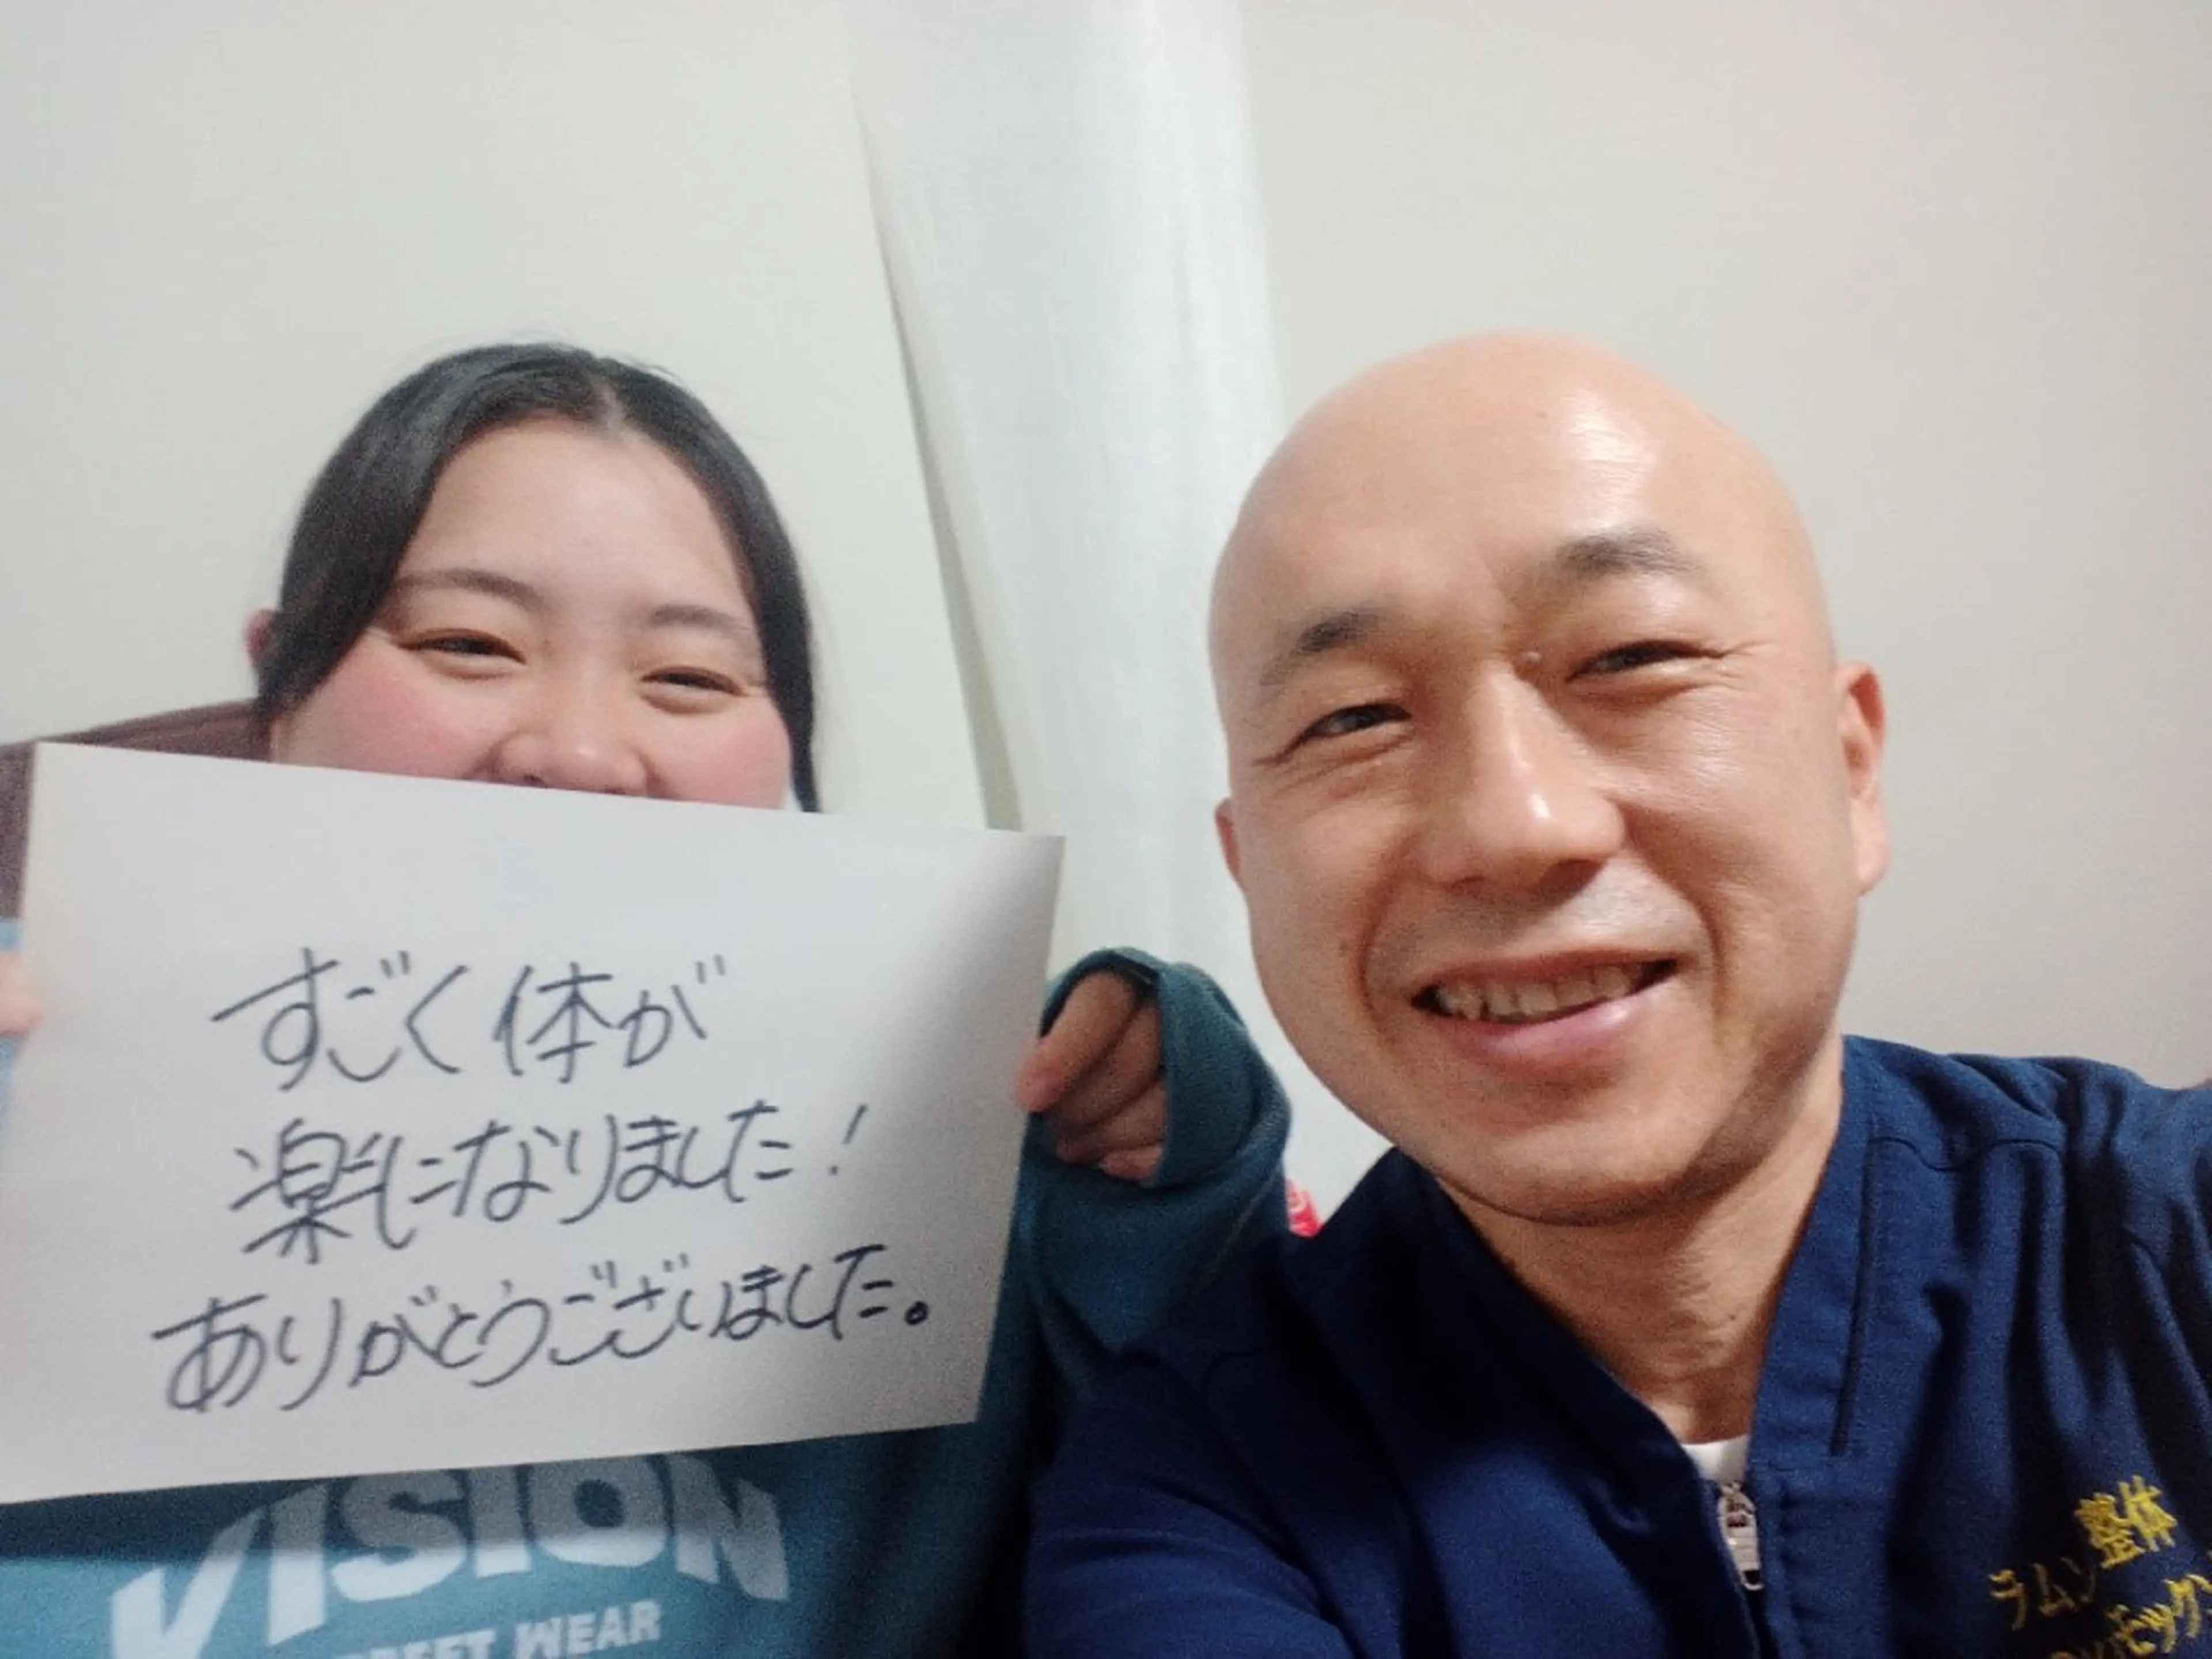 すごく体が
楽になりました!
ありがとうございました。
VISION
STREET WEAR
整体